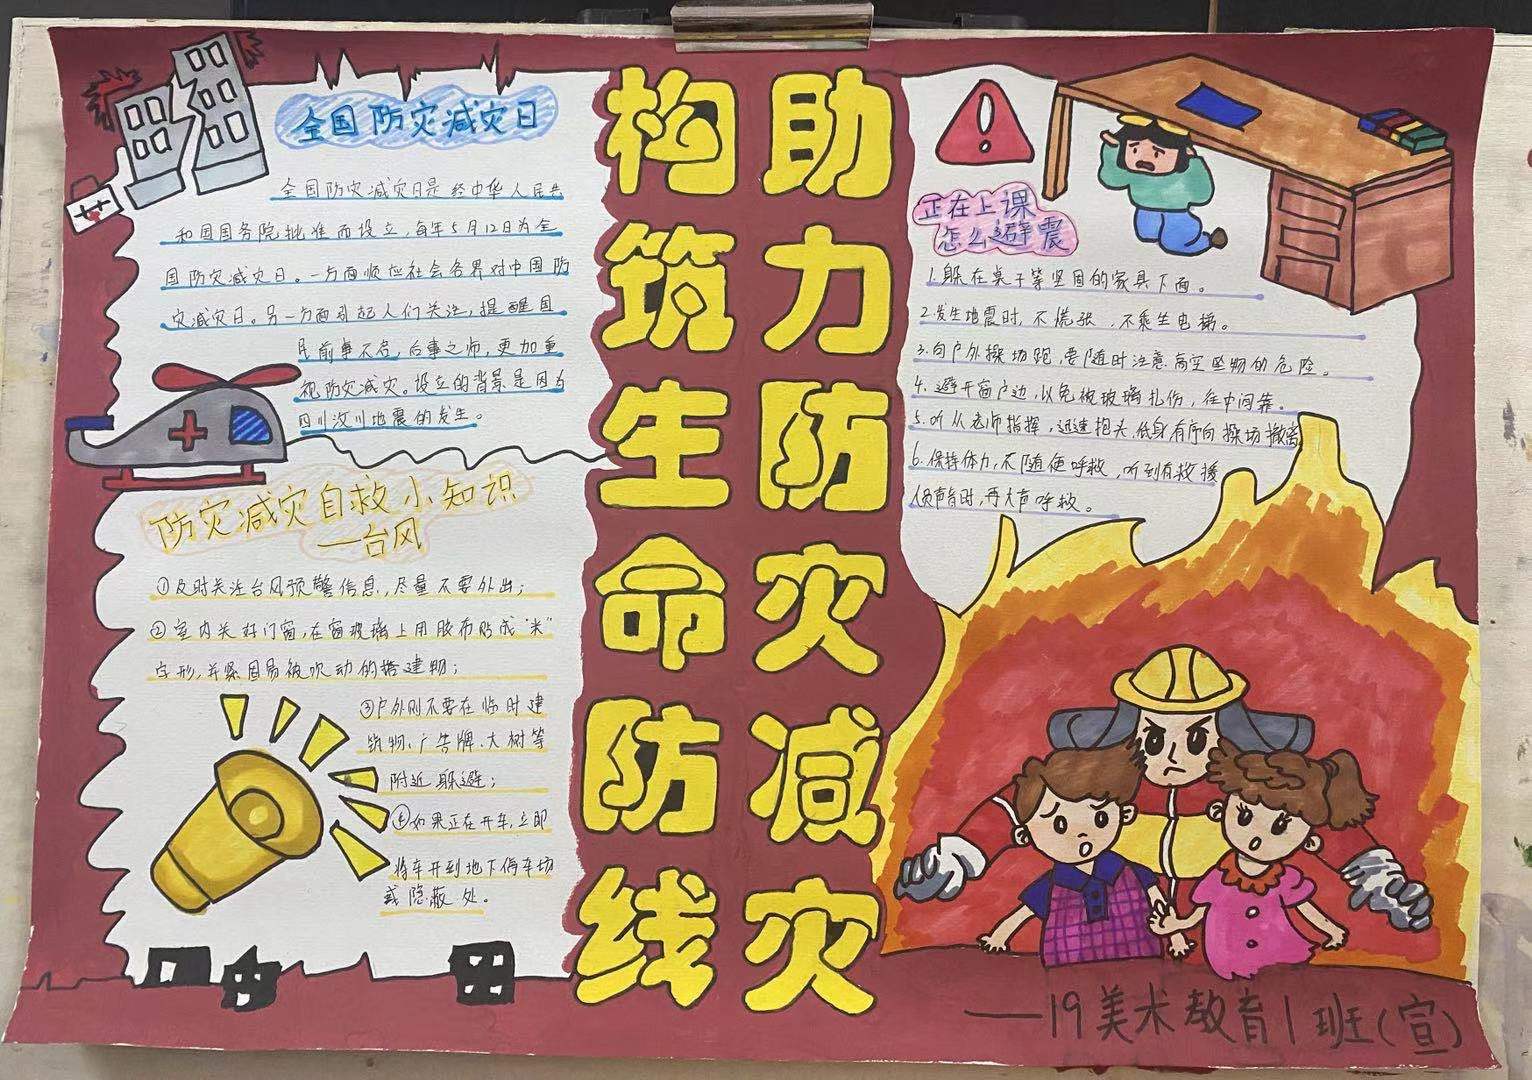 助力防灾减灾
构筑生命防线
全国防灾减灾日
全国防灾减灾日是经中华人民共
和国国务院批准而设立,每年5月12日为全
国防灾减灾日。一方面顺应社会各界对中国防
灾减灾日。另一方面引起人们关注,提醒国
民前事不忘,后事之师,更加重
视防灾减灾。设立的背景是因为
四川汶川地震的发生。
防灾减灾自救小知识
—台风
①及时关注台风预警信息,尽量不要外出;
②室内关好门窗,在窗玻璃上用胶布贴成“米”
字形,并紧固易被吹动的搭建物;
③户外则不要在临时建
筑物、广告牌、大树等
附近躲避;
④如果正在开车,立即
将车开到地下停车场
或隐蔽处。
正在上课
怎么避震
1.躲在桌子等坚固的家具下面。
2.发生地震时,不慌张,不乘坐电梯。
3.向户外操场跑,要随时注意高空坠物的危险。
4.避开窗户边,以免被玻璃扎伤,往中间靠。
5.听从老师指挥,迅速抱头、低身有序向操场撤离
6.保持体力,不随便呼救,听到有救援
人员声音时,再大声呼救。
——19美术教育1班(宣)